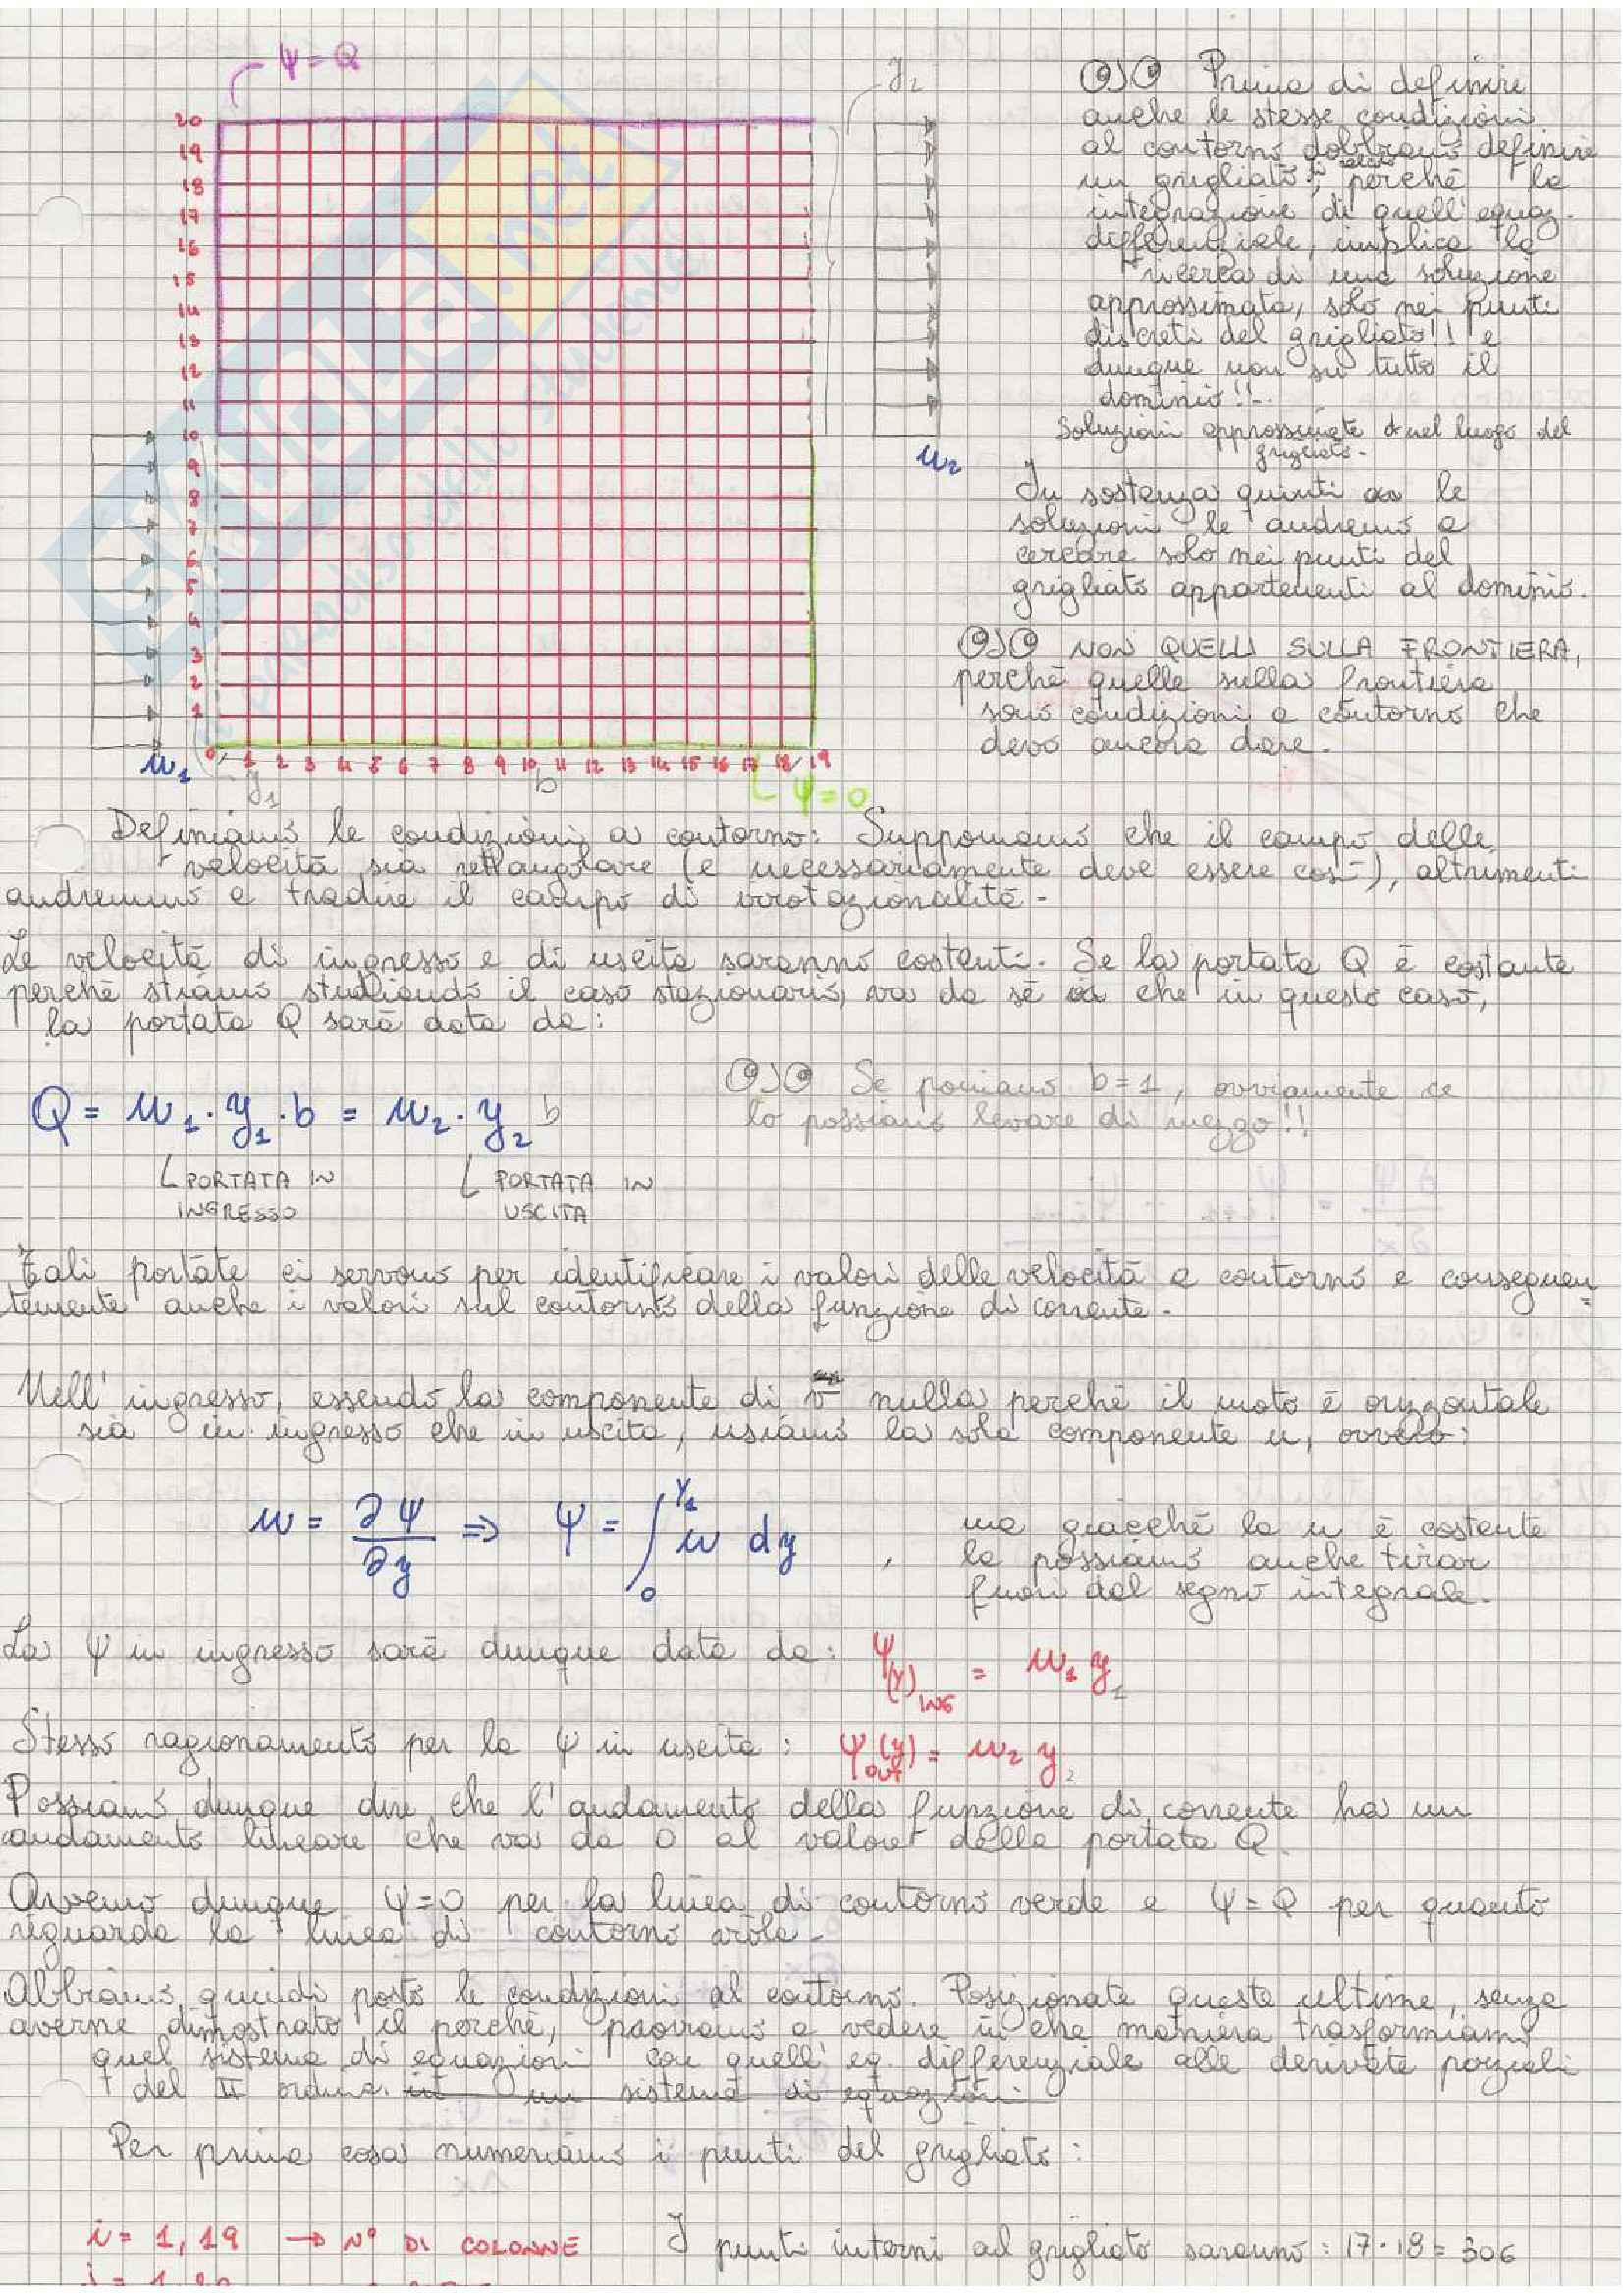 ψ = Q
y2
20
19
18
17
16
15
14
13
12
11
10
9
8
7
6
5
4
3
2
1
0 1 2 3 4 5 6 7 8 9 10 11 12 13 14 15 16 17 18 19
u1
y1
b
ψ = 0
u2
SKUOLA.net
paradiso dello studente
Prima di definire
anche le stesse condizioni
al contorno dobbiamo definire
un grigliato, perché la
integrazione di quell'equaz.
differenziale, implica la
ricerca di una soluzione
approssimata, solo nei punti
discreti del grigliato!! e
dunque non su tutto il
dominio!!..
Soluzioni approssimate nel luogo del
grigliato.
In sostanza quinti le
soluzioni le andremo a
cercare solo nei punti del
grigliato appartenenti al dominio.
NON QUELLI SULLA FRONTIERA,
perché quelle sulla frontiera
sono condizioni a contorno che
devo ancora dare.
Definiamo le condizioni a contorno: Supponiamo che il campo delle
velocità sia rettangolare (e necessariamente deve essere così), altrimenti
andremmo a tradire il campo di irrotazionalità.
Le velocità di ingresso e di uscita saranno costanti. Se la portata Q è costante
perché stiamo studiando il caso stazionario, va da sé che in questo caso,
la portata Q sarà data da:
Q = u1 · y1 · b = u2 · y2 b
Se poniamo b=1, ovviamente ce
lo possiamo levare di mezzo!!
PORTATA IN INGRESSO
PORTATA IN USCITA
Tali portate ci servono per identificare i valori delle velocità a contorno e conseguen=
temente anche i valori sul contorno della funzione di corrente.
Nell'ingresso, essendo la componente di v nulla perché il moto è orizzontale
sia in ingresso che in uscita, usiamo la sola componente u, ovvero:
u = ∂ψ/∂y ⇒ ψ = ∫₀^Y1 u dy ,
ma giacché la u è costante
la possiamo anche tirar
fuori dal segno integrale.
La ψ in ingresso sarà dunque data da: ψ(y) ING = u1 y1
Stesso ragionamento per la ψ in uscita: ψ OUT (y) = u2 y2
Possiamo dunque dire che l'andamento della funzione di corrente ha un
andamento lineare che va da 0 al valore della portata Q.
Avremo dunque ψ=0 per la linea di contorno verde e ψ=Q per quanto
riguarda la linea di contorno viola.
Abbiamo quindi posto le condizioni al contorno. Posizionate queste ultime, senza
averne dimostrato il perché, proviamo a vedere in che maniera trasformiamo
quel sistema di equazioni con quell'eq. differenziale alle derivate parziali
del II ordine. in un sistema di equazioni.
Per prima cosa numeriamo i punti del grigliato:
i = 1, 19 → N° DI COLONNE I punti interni al grigliato saranno: 17·18 = 306